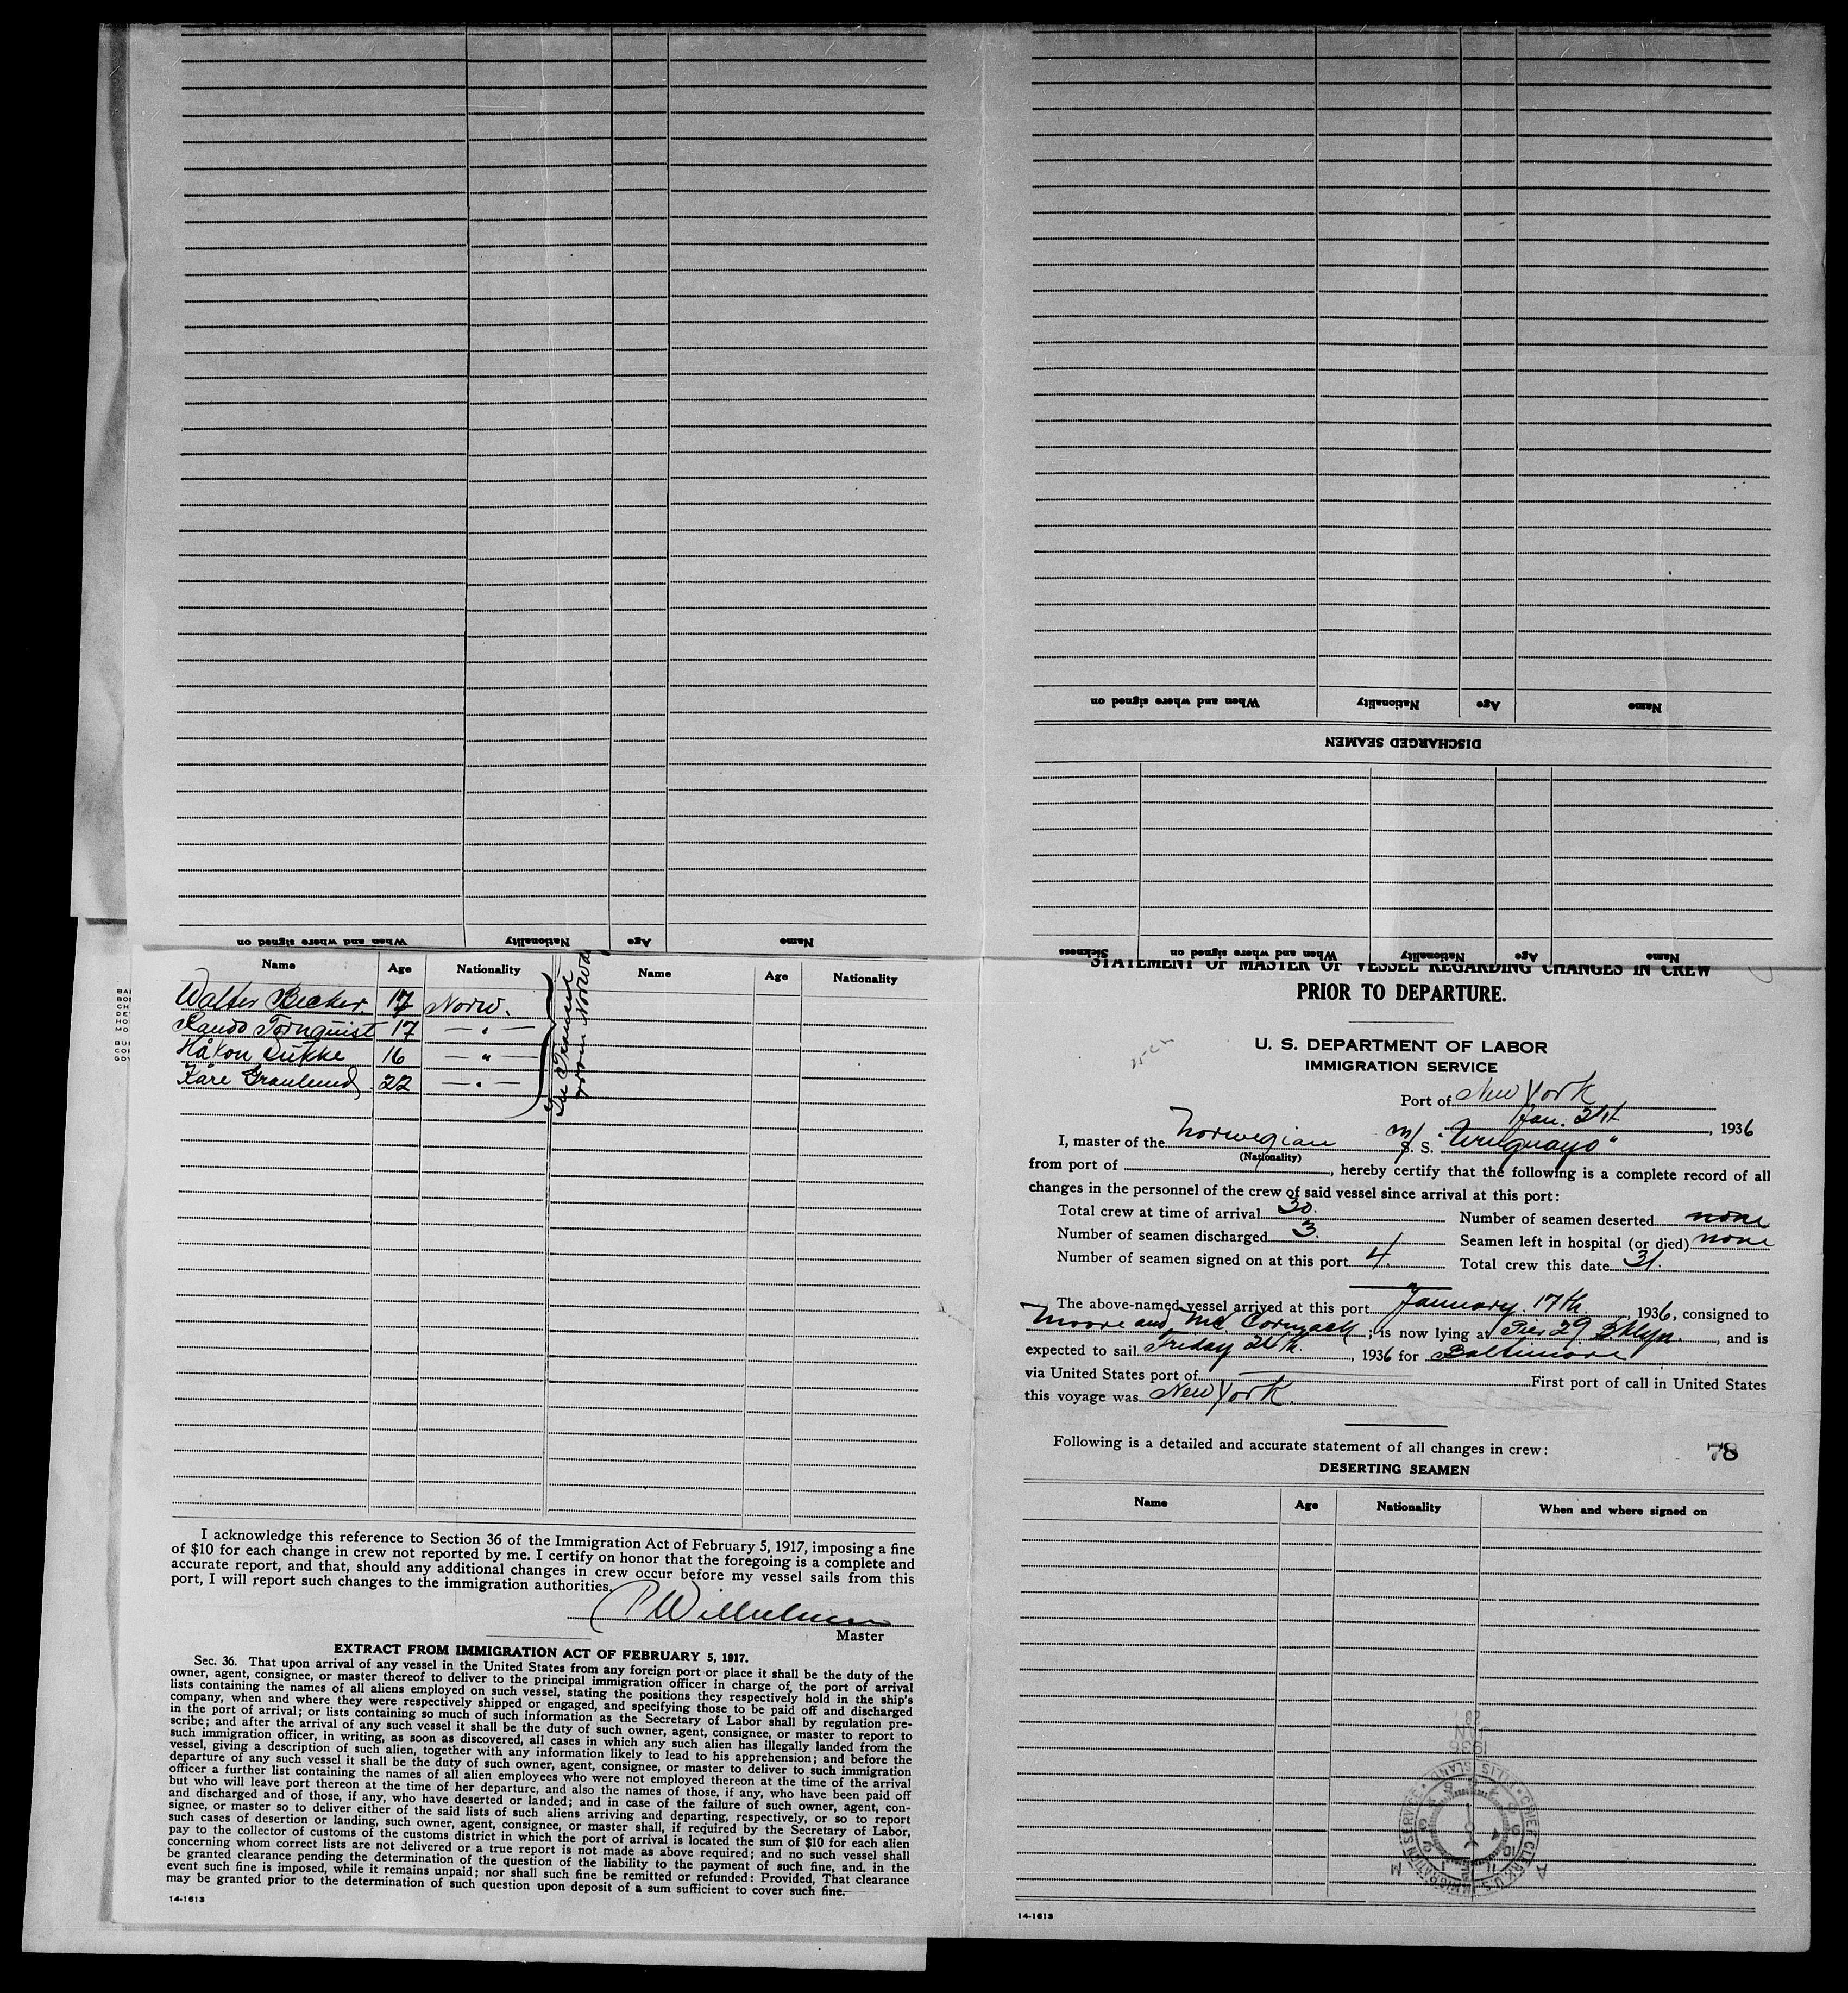 When and where signed on Nationality Age Name
When and where signed on Nationality Age Name
DISCHARGED SEAMEN
Sickness When and where signed on Nationality Age Name
Name Age Nationality Name Age Nationality
Walter Becker. 17 Norw.
Tornquist 17 — " —
Håkon 16 — " —
Kåre Graulund 22 — " —
from Norway
I acknowledge this reference to Section 36 of the Immigration Act of February 5, 1917, imposing a fine
of $10 for each change in crew not reported by me. I certify on honor that the foregoing is a complete and
accurate report, and that, should any additional changes in crew occur before my vessel sails from this
port, I will report such changes to the immigration authorities.
Master
EXTRACT FROM IMMIGRATION ACT OF FEBRUARY 5, 1917.
Sec. 36. That upon arrival of any vessel in the United States from any foreign port or place it shall be the duty of the
owner, agent, consignee, or master thereof to deliver to the principal immigration officer in charge of the port of arrival
lists containing the names of all aliens employed on such vessel, stating the positions they respectively hold in the ship's
company, when and where they were respectively shipped or engaged, and specifying those to be paid off and discharged
in the port of arrival; or lists containing so much of such information as the Secretary of Labor shall by regulation pre-
scribe; and after the arrival of any such vessel it shall be the duty of such owner, agent, consignee, or master to report to
such immigration officer, in writing, as soon as discovered, all cases in which any such alien has illegally landed from the
vessel, giving a description of such alien, together with any information likely to lead to his apprehension; and before the
departure of any such vessel it shall be the duty of such owner, agent, consignee, or master to deliver to such immigration
officer a further list containing the names of all alien employees who were not employed thereon at the time of the arrival
but who will leave port thereon at the time of her departure, and also the names of those, if any, who have been paid off
and discharged and of those, if any, who have deserted or landed; and in case of the failure of such owner, agent, con-
signee, or master so to deliver either of the said lists of such aliens arriving and departing, respectively, or so to report
such cases of desertion or landing, such owner, agent, consignee, or master shall, if required by the Secretary of Labor,
pay to the collector of customs of the customs district in which the port of arrival is located the sum of $10 for each alien
concerning whom correct lists are not delivered or a true report is not made as above required; and no such vessel shall
be granted clearance pending the determination of the question of the liability to the payment of such fine, and, in the
event such fine is imposed, while it remains unpaid; nor shall such fine be remitted or refunded: Provided, That clearance
may be granted prior to the determination of such question upon deposit of a sum sufficient to cover such fine.
14-1613
STATEMENT OF MASTER OF VESSEL REGARDING CHANGES IN CREW
PRIOR TO DEPARTURE.
U. S. DEPARTMENT OF LABOR
IMMIGRATION SERVICE
Port of New York
Jan. 21st, 1936
I, master of the Norwegian m/S. S. "Uruguayo"
(Nationality)
from port of , hereby certify that the following is a complete record of all
changes in the personnel of the crew of said vessel since arrival at this port:
Total crew at time of arrival 30. Number of seamen deserted none
Number of seamen discharged 3. Seamen left in hospital (or died) none
Number of seamen signed on at this port 4. Total crew this date 31.
The above-named vessel arrived at this port January 17th, 1936, consigned to
Moore and Mc. Cormack; is now lying at Pier 29 Bklyn., and is
expected to sail Friday 24th., 1936 for Baltimore
via United States port of First port of call in United States
this voyage was New York.
Following is a detailed and accurate statement of all changes in crew: 78
DESERTING SEAMEN
Name Age Nationality When and where signed on
1936
JAN
28
CHIEF CLERK U.S. IMMIGRATION SERVICE · ELLIS ISLAND
14-1613